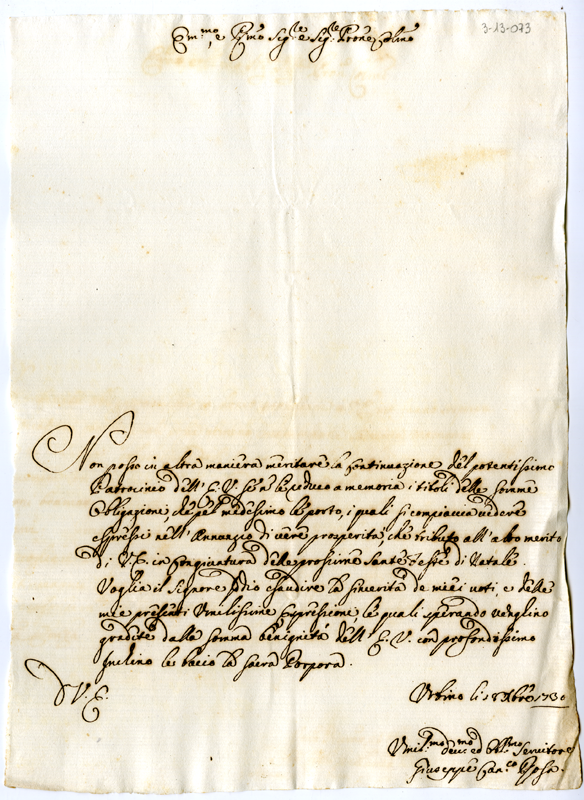 3-13-073
Em.mo, e R.mo Sig.re Sig.re Prone Colmo
Non posso in altra maniera meritare la continuazione del potentissimo
Patrocinio dell' E. V. se non le reduco a memoria i titoli delle somme
obligazioni, che pel medesimo le porto, i quali si compiaccia vedere
espressi nell' Annuazio di vere prosperità, che tributo all' alto merito
di V. E. in congiuntura delle prossime Sante Feste di Natale.
Voglia il Signore Iddio esaudire la sincerità de miei voti, e delle
mie presenti Umilissime Espressione, le quali sperando venghino
gradite dalla somma benignità dell' E. V. con profondissimo
Inchino le bacio la Sacra Porpora.
D V. E.
Urbino li 18 Xbre 1730
Umil.mo dev.mo ed Obl.mo Servitore
Giuseppe Can.co